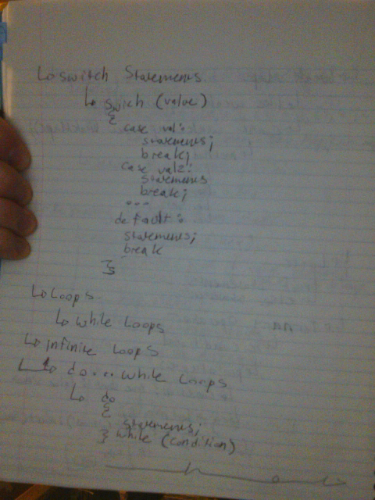 ↳ switch Statements
↳ swich (value)
{
case val1:
statements;
break;
case val2:
statements
break;
...
default:
statements;
break
};
↳ Loops
↳ while Loops
↳ infinite Loops
↳ do...while Loops
↳ do
{
statements;
} while (condition)